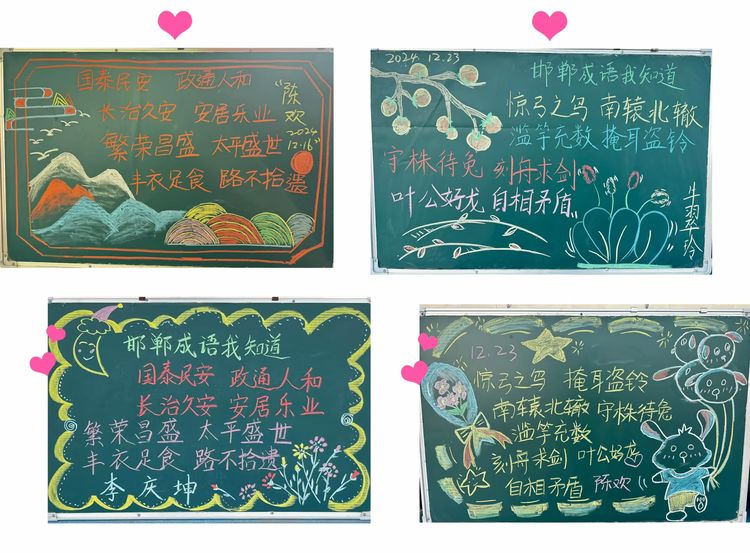 国泰民安 政通人和
长治久安 安居乐业
繁荣昌盛 太平盛世
丰衣足食 路不拾遗
“陈欢
2024
12.16”
2024.12.23
邯郸成语我知道
惊弓之鸟 南辕北辙
滥竽充数 掩耳盗铃
守株待兔 刻舟求剑
叶公好龙 自相矛盾
牛翠玲
邯郸成语我知道
国泰民安 政通人和
长治久安 安居乐业
繁荣昌盛 太平盛世
丰衣足食 路不拾遗
李庆坤
12.23
惊弓之鸟 掩耳盗铃
南辕北辙 守株待兔
滥竽充数
刻舟求剑 叶公好龙
自相矛盾 陈欢